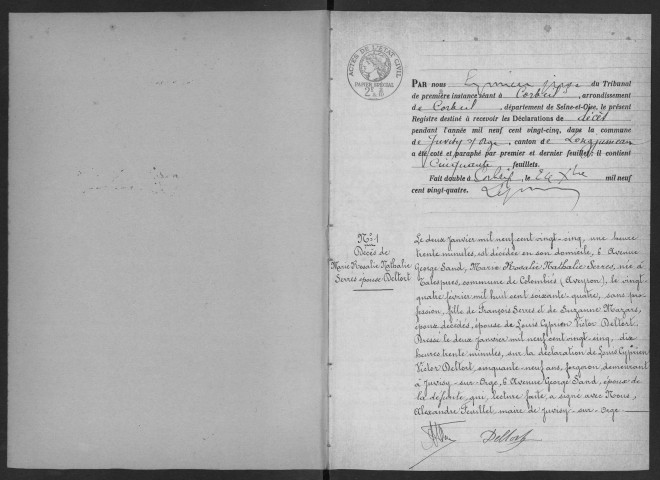 ACTES DE L'ÉTAT CIVIL
PAPIER SPÉCIAL
PAR nous premier juge du Tribunal
de première instance séant à Corbeil, arrondissement
de Corbeil, département de Seine-et-Oise, le présent
Registre destiné à recevoir les Déclarations de décès
pendant l'année mil neuf cent vingt-cinq, dans la commune
de Juvisy s/ Orge, canton de Longjumeau
a été coté et paraphé par premier et dernier feuillet; il contient
Cinquante feuillets.
Fait double à Corbeil, le Xbre mil neuf
cent vingt-quatre.
N° 1
Décès de
Marie Rosalie Nathalie
Serres épouse Deltort
Le deux janvier mil neuf cent vingt-cinq, une heure
trente minutes, est décédée en son domicile, 6 Avenue
George Sand, Marie Rosalie Nathalie Serres, née à
Talespues, commune de Colombiès (Aveyron), le vingt-
quatre février mil huit cent soixante-quatre, sans pro-
fession, fille de François Serres et de Suzanne Mazars,
époux décédés, épouse de Louis Cyprien Victor Deltort.
Dressé le deux janvier mil neuf cent vingt-cinq, dix
heures trente minutes, sur la déclaration de Louis Cyprien
Victor Deltort, cinquante-neuf ans, forgeron demeurant
à Juvisy-sur-Orge, 6 Avenue George Sand, époux de
la défunte, qui, lecture faite, a signé avec Nous,
Alexandre Feuillet maire de Juvisy-sur-Orge
Deltort